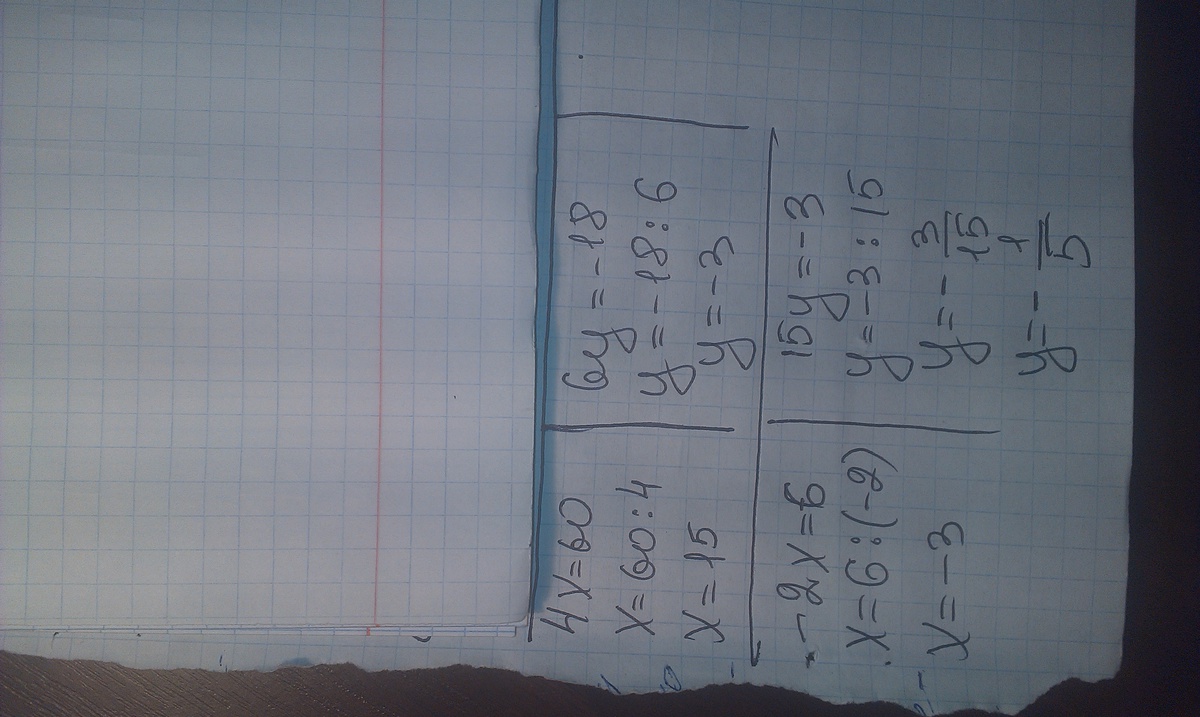 4x=60
x=60:4
x=15
6y=-18
y=-18:6
y=-3
-2x=6
x=6:(-2)
x=-3
15y=-3
y=-3:15
y=-3/15
y=-1/5